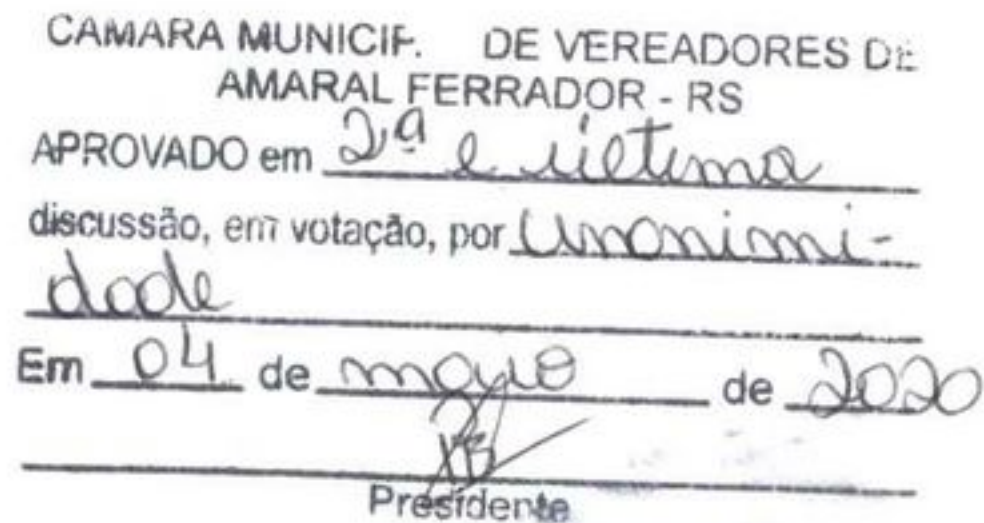 CAMARA MUNICIP. DE VEREADORES DE
AMARAL FERRADOR - RS
APROVADO em 2ª e última
discussão, em votação, por Unanimi-
dade
Em 04 de maio de 2020
Presidente